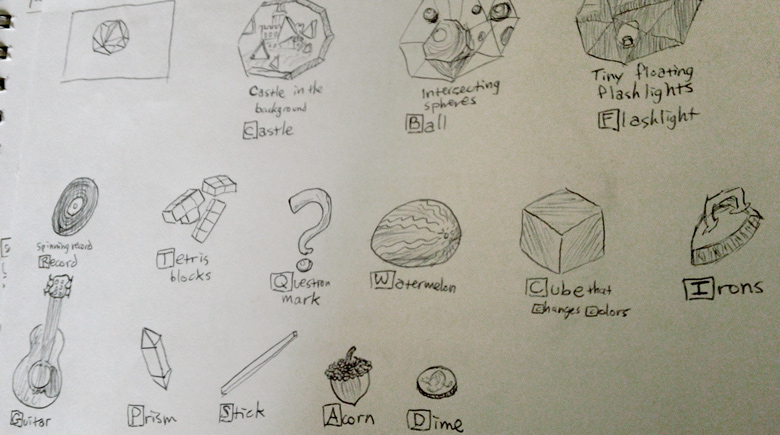 Castle in the
background
Castle
Intersecting
spheres
Ball
Tiny floating
flashlights
Flashlight
Spinning record
Record
Tetris
blocks
Question
mark
Watermelon
Cube that
changes colors
Irons
Guitar
Prism
Stick
Acorn
Dime